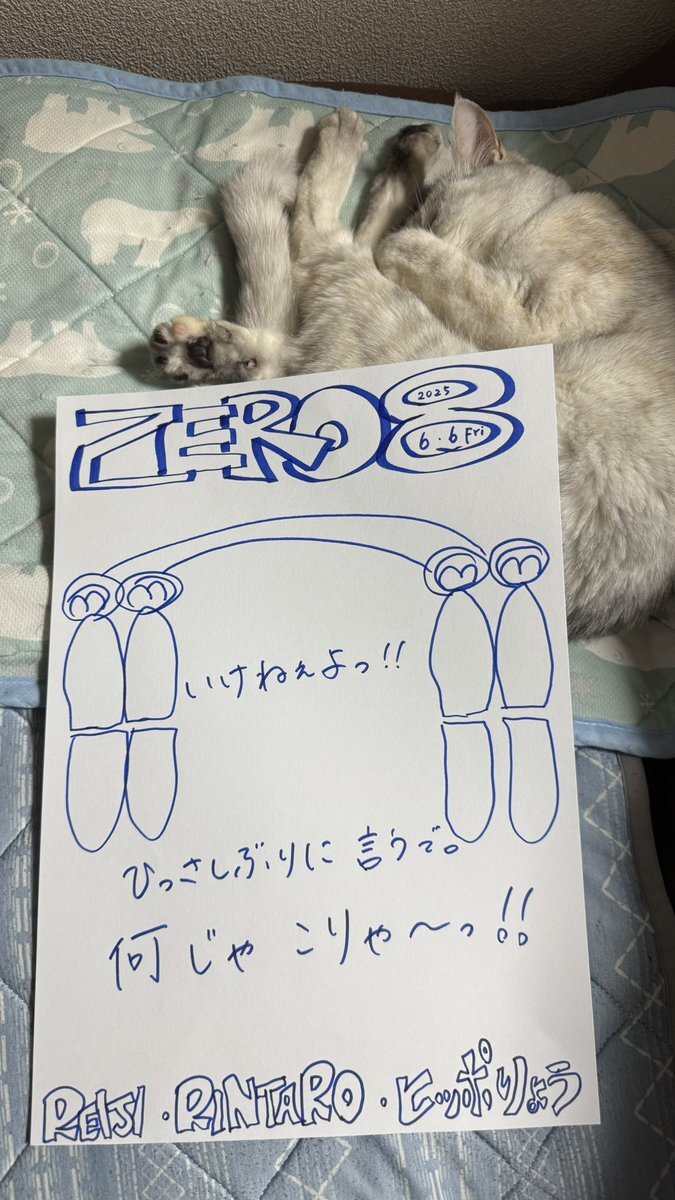 ZERO8
2025
6.6 Fri
いけねぇよっ!!
ひっさしぶりに言うで。
何じゃこりゃ〜っ!!
REISI・RINTARO・ヒッポりょう